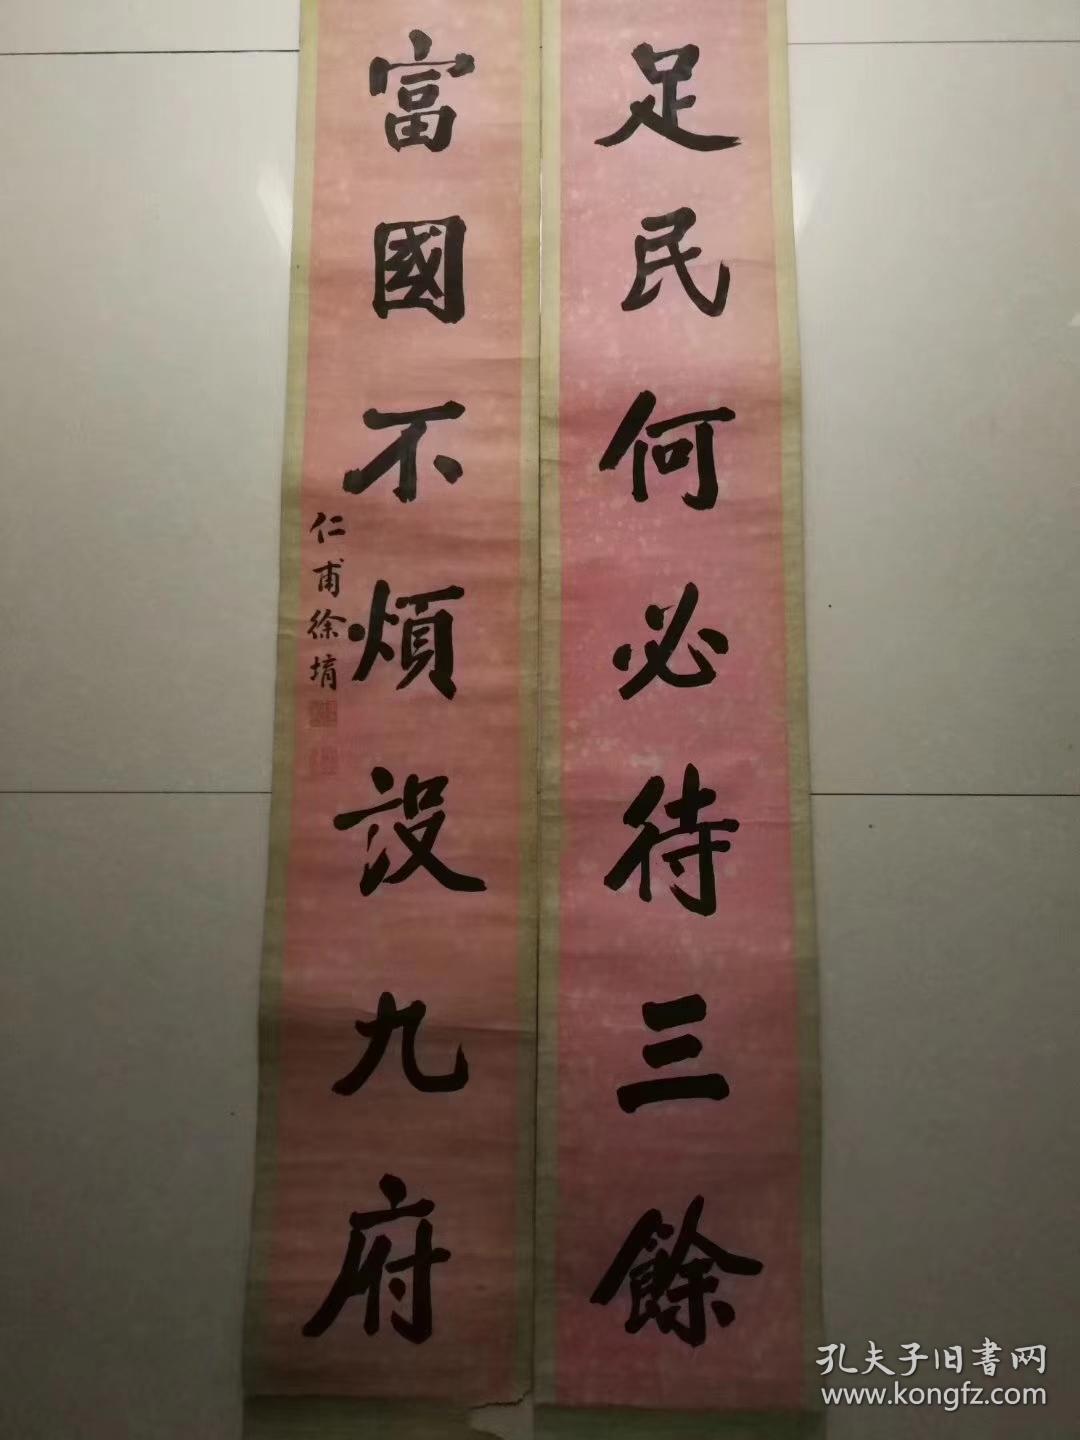 足民何必待三餘
富國不煩設九府
仁甫徐堉
孔夫子旧書网
www.kongfz.com